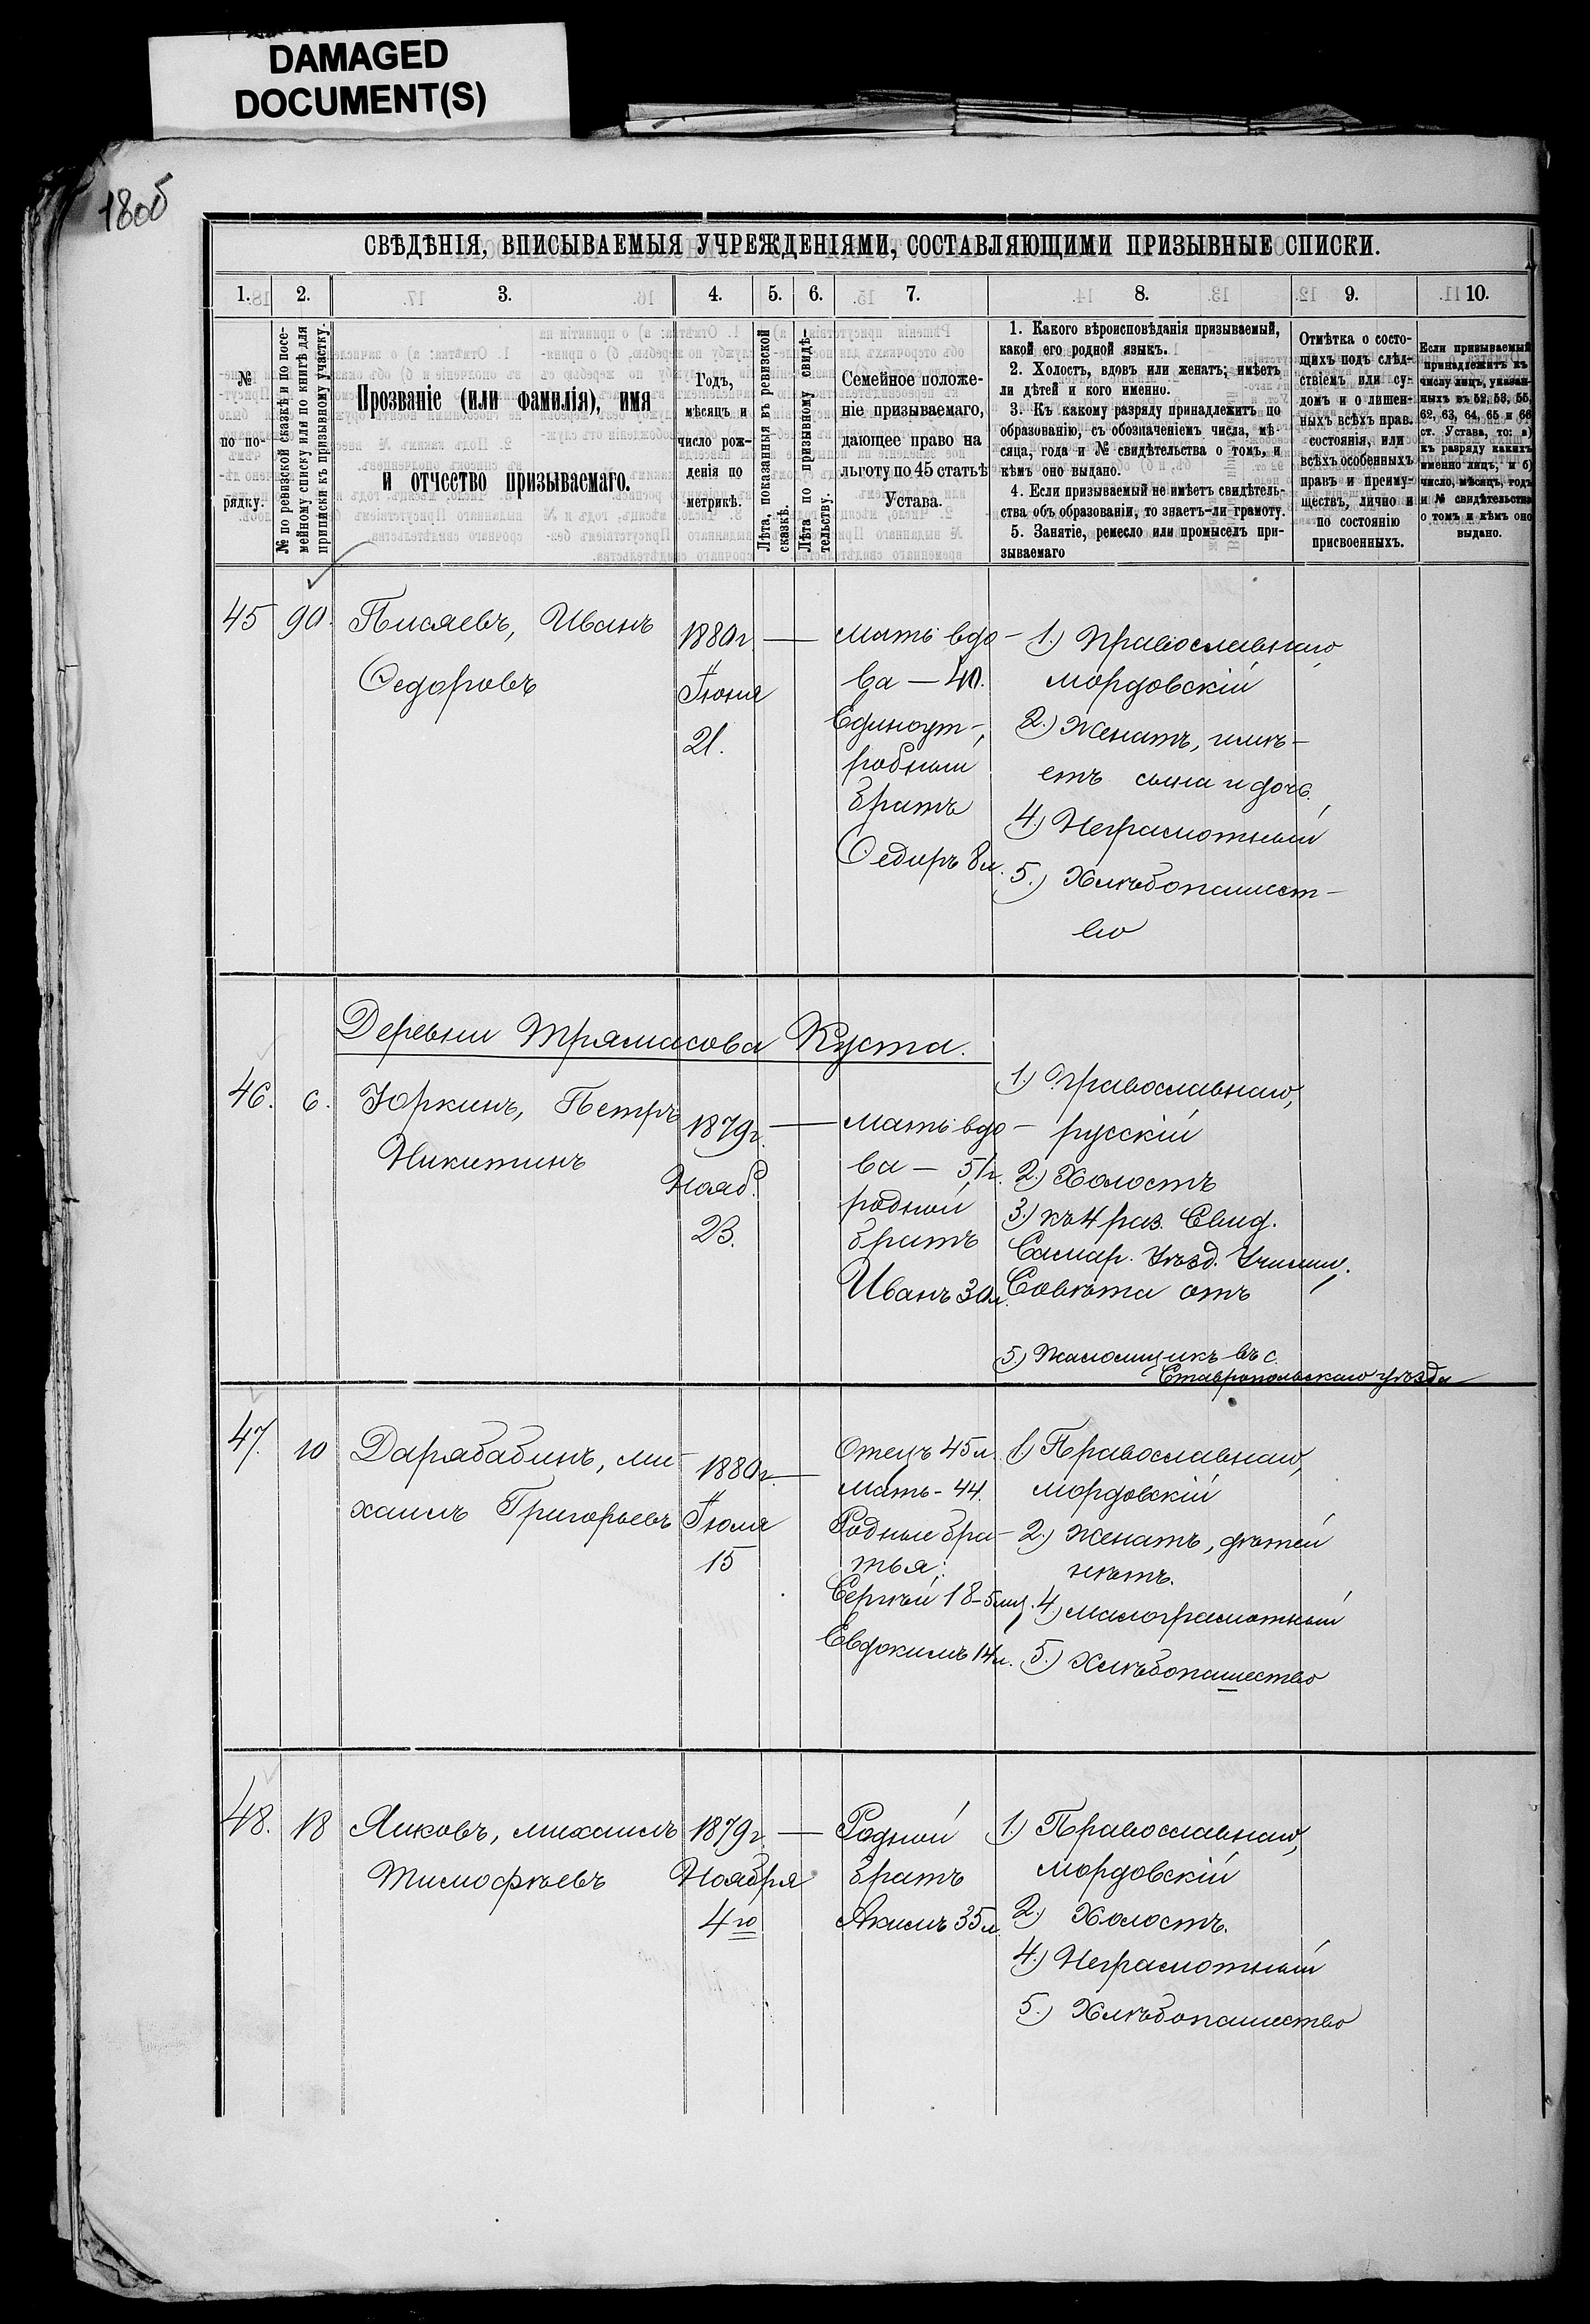 DAMAGED
DOCUMENT(S)
180об
СВѢДѢНІЯ, ВПИСЫВАЕМЫЯ УЧРЕЖДЕНІЯМИ, СОСТАВЛЯЮЩИМИ ПРИЗЫВНЫЕ СПИСКИ.
1. 2. 3. 4. 5. 6. 7. 8. 9. 10.
№
по по-
рядку.
№ по ревизской сказкѣ и по посе-
мейному списку или по книгѣ для
приписки къ призывному участку.
Прозваніе (или фамилія), имя
и отчество призываемаго.
Годъ,
мѣсяцъ и
число рож-
денія по
метрикѣ.
Лѣта, показанныя въ ревизской
сказкѣ.
Лѣта по призывному свидѣ-
тельству.
Семейное положе-
ніе призываемаго,
дающее право на
льготу по 45 статьѣ
Устава.
1. Какого вѣроисповѣданія призываемый,
какой его родной языкъ.
2. Холостъ, вдовъ или женатъ; имѣетъ
ли дѣтей и кого именно.
3. Къ какому разряду принадлежитъ по
образованію, съ обозначеніемъ числа, мѣ-
сяца, года и № свидѣтельства о томъ, и
кѣмъ оно выдано.
4. Если призываемый не имѣетъ свидѣтель-
ства объ образованіи, то знаетъ-ли грамоту.
5. Занятіе, ремесло или промыселъ при-
зываемаго
Отмѣтка о состо-
ящихъ подъ слѣд-
ствіемъ или су-
домъ и о лишен-
ныхъ всѣхъ прав.
состоянія, или
всѣхъ особенныхъ
правъ и преиму-
ществъ, лично и
по состоянію
присвоенныхъ.
Если призываемый
принадлежитъ къ
числу лицъ, указан-
ныхъ въ 52, 53, 55,
62, 63, 64, 65 и 66
ст. Устава, то: а)
къ разряду какихъ
именно лицъ, и б)
число, мѣсяцъ, годъ
и № свидѣтельства
о томъ и кѣмъ оно
выдано.
45 90. Писяевъ, Иванъ
Ѳедоровъ
1880г
Іюня
21.
мать вдо-
ва — 40.
Единоут-
робный
братъ
Ѳедоръ 8 л.
1.) Православнаго,
мордовскій
2.) Женатъ, имѣ-
етъ сына и доч.
4.) Неграмотный
5.) Хлѣбопашест-
во
Деревни Трямасова Куста.
46. 6. Юркинъ, Петръ
Никитинъ
1879г.
Нояб.
23.
мать вдо-
ва — 51г.
родной
братъ
Иванъ 30л.
1.) Православнаго,
русскій
2.) Холостъ
3.) къ 4 раз. Свид.
Самар. Уѣзд. Училищ.
Совѣта отъ
5.) въ с.
Ставропольскаго уѣзда
47. 10 Дарябабинъ, ми-
хаилъ Григорьевъ
1880г.
Іюля
15
Отецъ 45 л.
Мать - 44.
Родные бра-
тья:
Сергѣй 18-5 мц.
Евдокимъ 14 л.
1.) Православнаго,
мордовскій
2.) Женатъ, дѣтей
нѣтъ.
4.) малограмотный
5.) Хлѣбопашество
48. 18 Яиковъ, михаилъ
Тимофѣевъ
1879г.
Ноября
4го
Родной
братъ
Акимъ 35 л.
1.) Православнаго,
мордовскій
2.) Холостъ.
4.) Неграмотный
5.) Хлѣбопашество